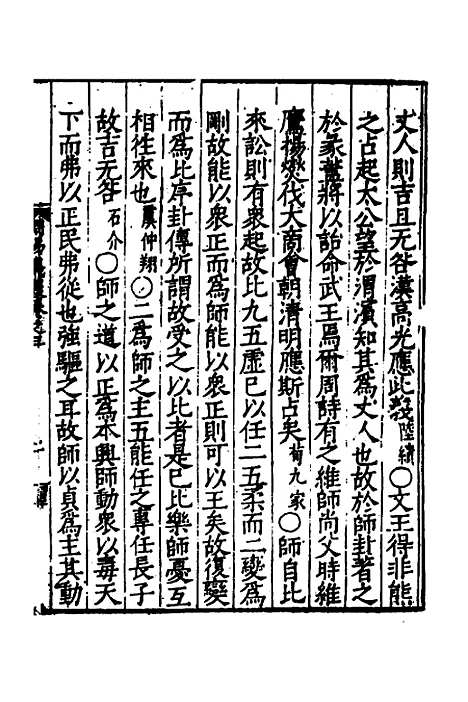 丈人則吉且无咎漢高光應此義陸績〇文王得非熊
之占起太公望於渭濱知其為丈人也故於師卦著之
於彖蓋將以詒命武王焉爾周詩有之維師尚父時維
鷹揚爕伐大商會朝清明應斯占矣荀九家〇師自比
來訟則有衆起故比九五虛已以任二五柔而二變為
剛故能以衆正而為師能以衆正則可以王矣故復變
而為比序卦傳所謂故受之以比者是已比樂師憂互
相徃來也虞仲翔〇二為師之主五能任之專任長子
故吉无咎石介〇師之道以正為本興師動衆以毒天
下而弗以正民弗從也強驅之耳故師以貞為主其動